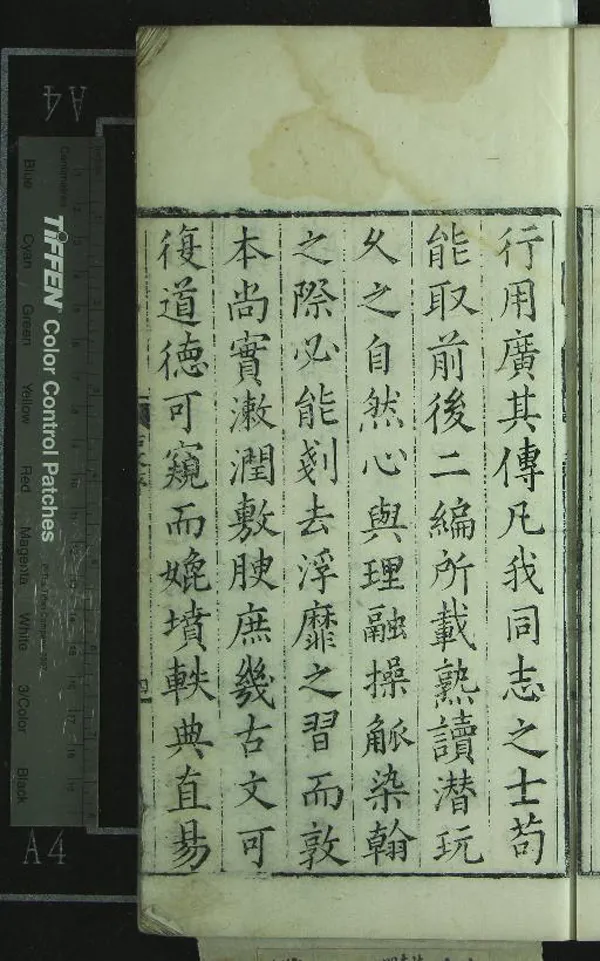 行用廣其傳凡我同志之士苟
能取前後二編所載熟讀潛玩
久之自然心與理融操觚染翰
之際必能剗去浮靡之習而敦
本尚實漱潤敷腴庶幾古文可
復道德可窺而媲墳軼典直易
A4
TIFFEN Color Control Patches
Centimetres
Blue
Cyan
Green
Yellow
Red
Magenta
White
3/Color
Black
A4